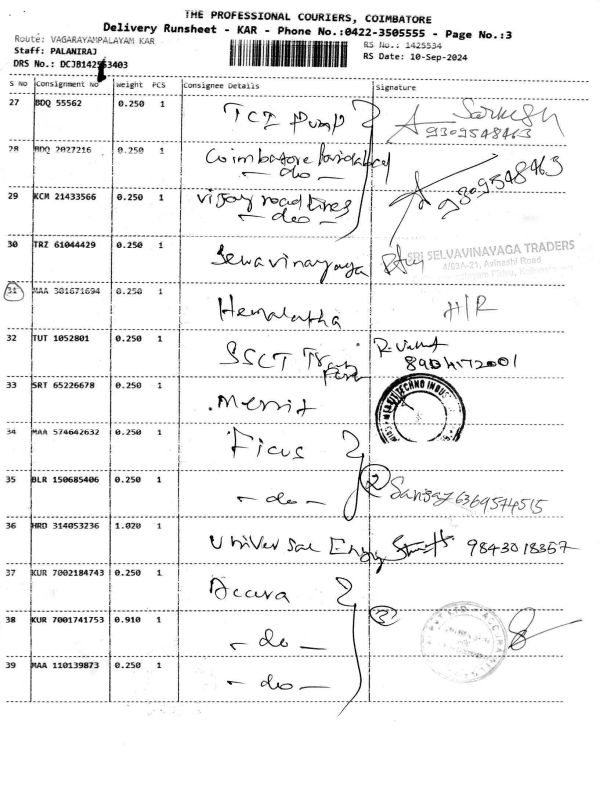 THE PROFESSIONAL COURIERS, COIMBATORE
Delivery Runsheet - KAR - Phone No.:0422-3505555 - Page No.:3
Route: VAGARAYAMPALAYAM KAR
RS No.: 1425534
Staff: PALANIRAJ
RS Date: 10-Sep-2024
DRS No.: DCJB142553403
S No Consignment No Weight PCS Consignee Details Signature
27 BDQ 55562 0.250 1 TCI Pump
9309548463
28 BDQ 2027216 0.250 1 Coimbatore
- do -
9309548463
29 KCM 21433566 0.250 1 Vijay roadlines
- do -
30 TRZ 61044429 0.250 1 Selvavinayaga SRI SELVAVINAYAGA TRADERS
4/63A-21, Avinashi Road
31 MAA 381671694 0.250 1 Hemalatha H/R
32 TUT 1052801 0.250 1 SSCT
33 SRT 65226678 0.250 1 Merrit
34 MAA 574642632 0.250 1 Ficus
35 BLR 150685406 0.250 1 - do - 2 Sanjay 6369574515
36 HRD 314053236 1.020 1 Universal 9843018357
37 KUR 7002184743 0.250 1 Accura
38 KUR 7001741753 0.910 1 - do - 3
39 MAA 110139873 0.250 1 - do -